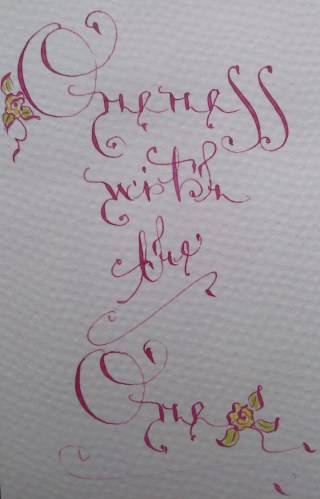 Oneness
with
the
One